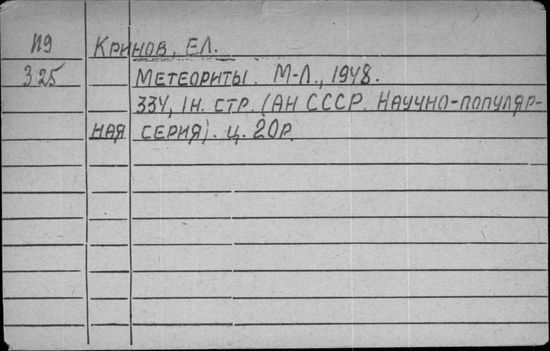 П9 Кринов. Е.Л.
325 Метеориты. М-Л., 1948.
334, 1н. стр. (АН СССР. Научно-популяр-
ная серия). ц. 20р.